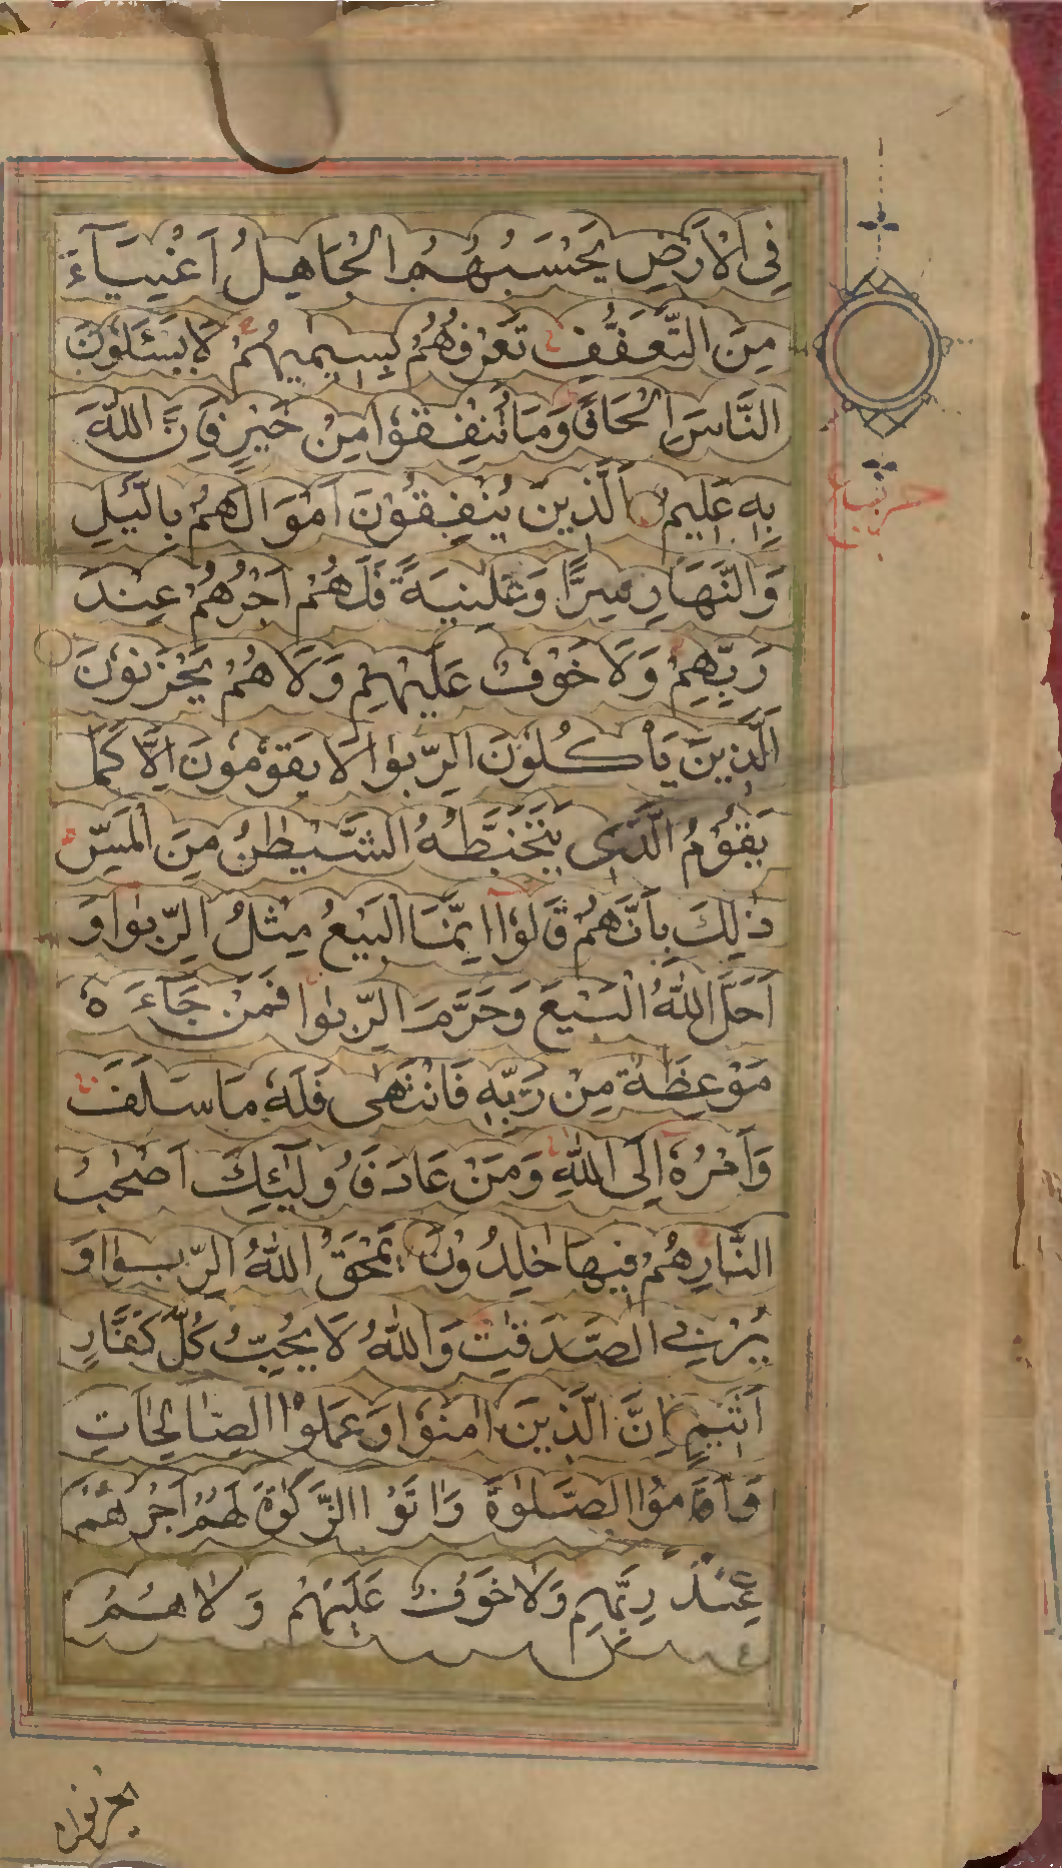 فِى الْاَرْضِ يَحْسَبُهُمُ الْجَاهِلُ اَغْنِيَآءَ
مِنَ التَّعَفُّفِ تَعْرِفُهُمْ بِسِيمٰيهُمْ لَا يَسْـَٔلُوْنَ
النَّاسَ اِلْحَافًا وَمَا تُنْفِقُوْا مِنْ خَيْرٍ فَاِنَّ اللّٰهَ
بِهٖ عَلِيْمٌ اَلَّذِيْنَ يُنْفِقُوْنَ اَمْوَالَهُمْ بِالَّيْلِ
وَالنَّهَارِ سِرًّا وَعَلَانِيَةً فَلَهُمْ اَجْرُهُمْ عِنْدَ
رَبِّهِمْ وَلَا خَوْفٌ عَلَيْهِمْ وَلَا هُمْ يَحْزَنُوْنَ
اَلَّذِيْنَ يَأْكُلُوْنَ الرِّبٰوا لَا يَقُوْمُوْنَ اِلَّا كَمَا
يَقُوْمُ الَّذِى يَتَخَبَّطُهُ الشَّيْطٰنُ مِنَ الْمَسِّ
ذٰلِكَ بِاَنَّهُمْ قَالُوْٓا اِنَّمَا الْبَيْعُ مِثْلُ الرِّبٰوا وَ
اَحَلَّ اللّٰهُ الْبَيْعَ وَحَرَّمَ الرِّبٰوا فَمَنْ جَآءَهٗ
مَوْعِظَةٌ مِنْ رَبِّهٖ فَانْتَهٰى فَلَهٗ مَا سَلَفَ
وَاَمْرُهٗٓ اِلَى اللّٰهِ وَمَنْ عَادَ فَاُولٰٓئِكَ اَصْحٰبُ
النَّارِ هُمْ فِيهَا خٰلِدُوْنَ يَمْحَقُ اللّٰهُ الرِّبٰوا وَ
يُرْبِى الصَّدَقٰتِ وَاللّٰهُ لَا يُحِبُّ كُلَّ كَفَّارٍ
اَثِيْمٍ اِنَّ الَّذِيْنَ اٰمَنُوْا وَعَمِلُوا الصَّالِحَاتِ
وَاَقَامُوا الصَّلٰوةَ وَاٰتَوُا الزَّكٰوةَ لَهُمْ اَجْرُهُمْ
عِنْدَ رَبِّهِمْ وَلَا خَوْفٌ عَلَيْهِمْ وَلَا هُمْ
يحزنون